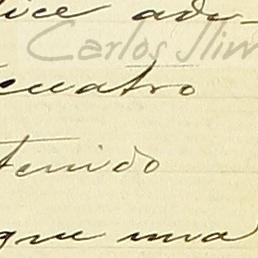 dice ade-
Carlos Jlim
cuatro
tenido
que una